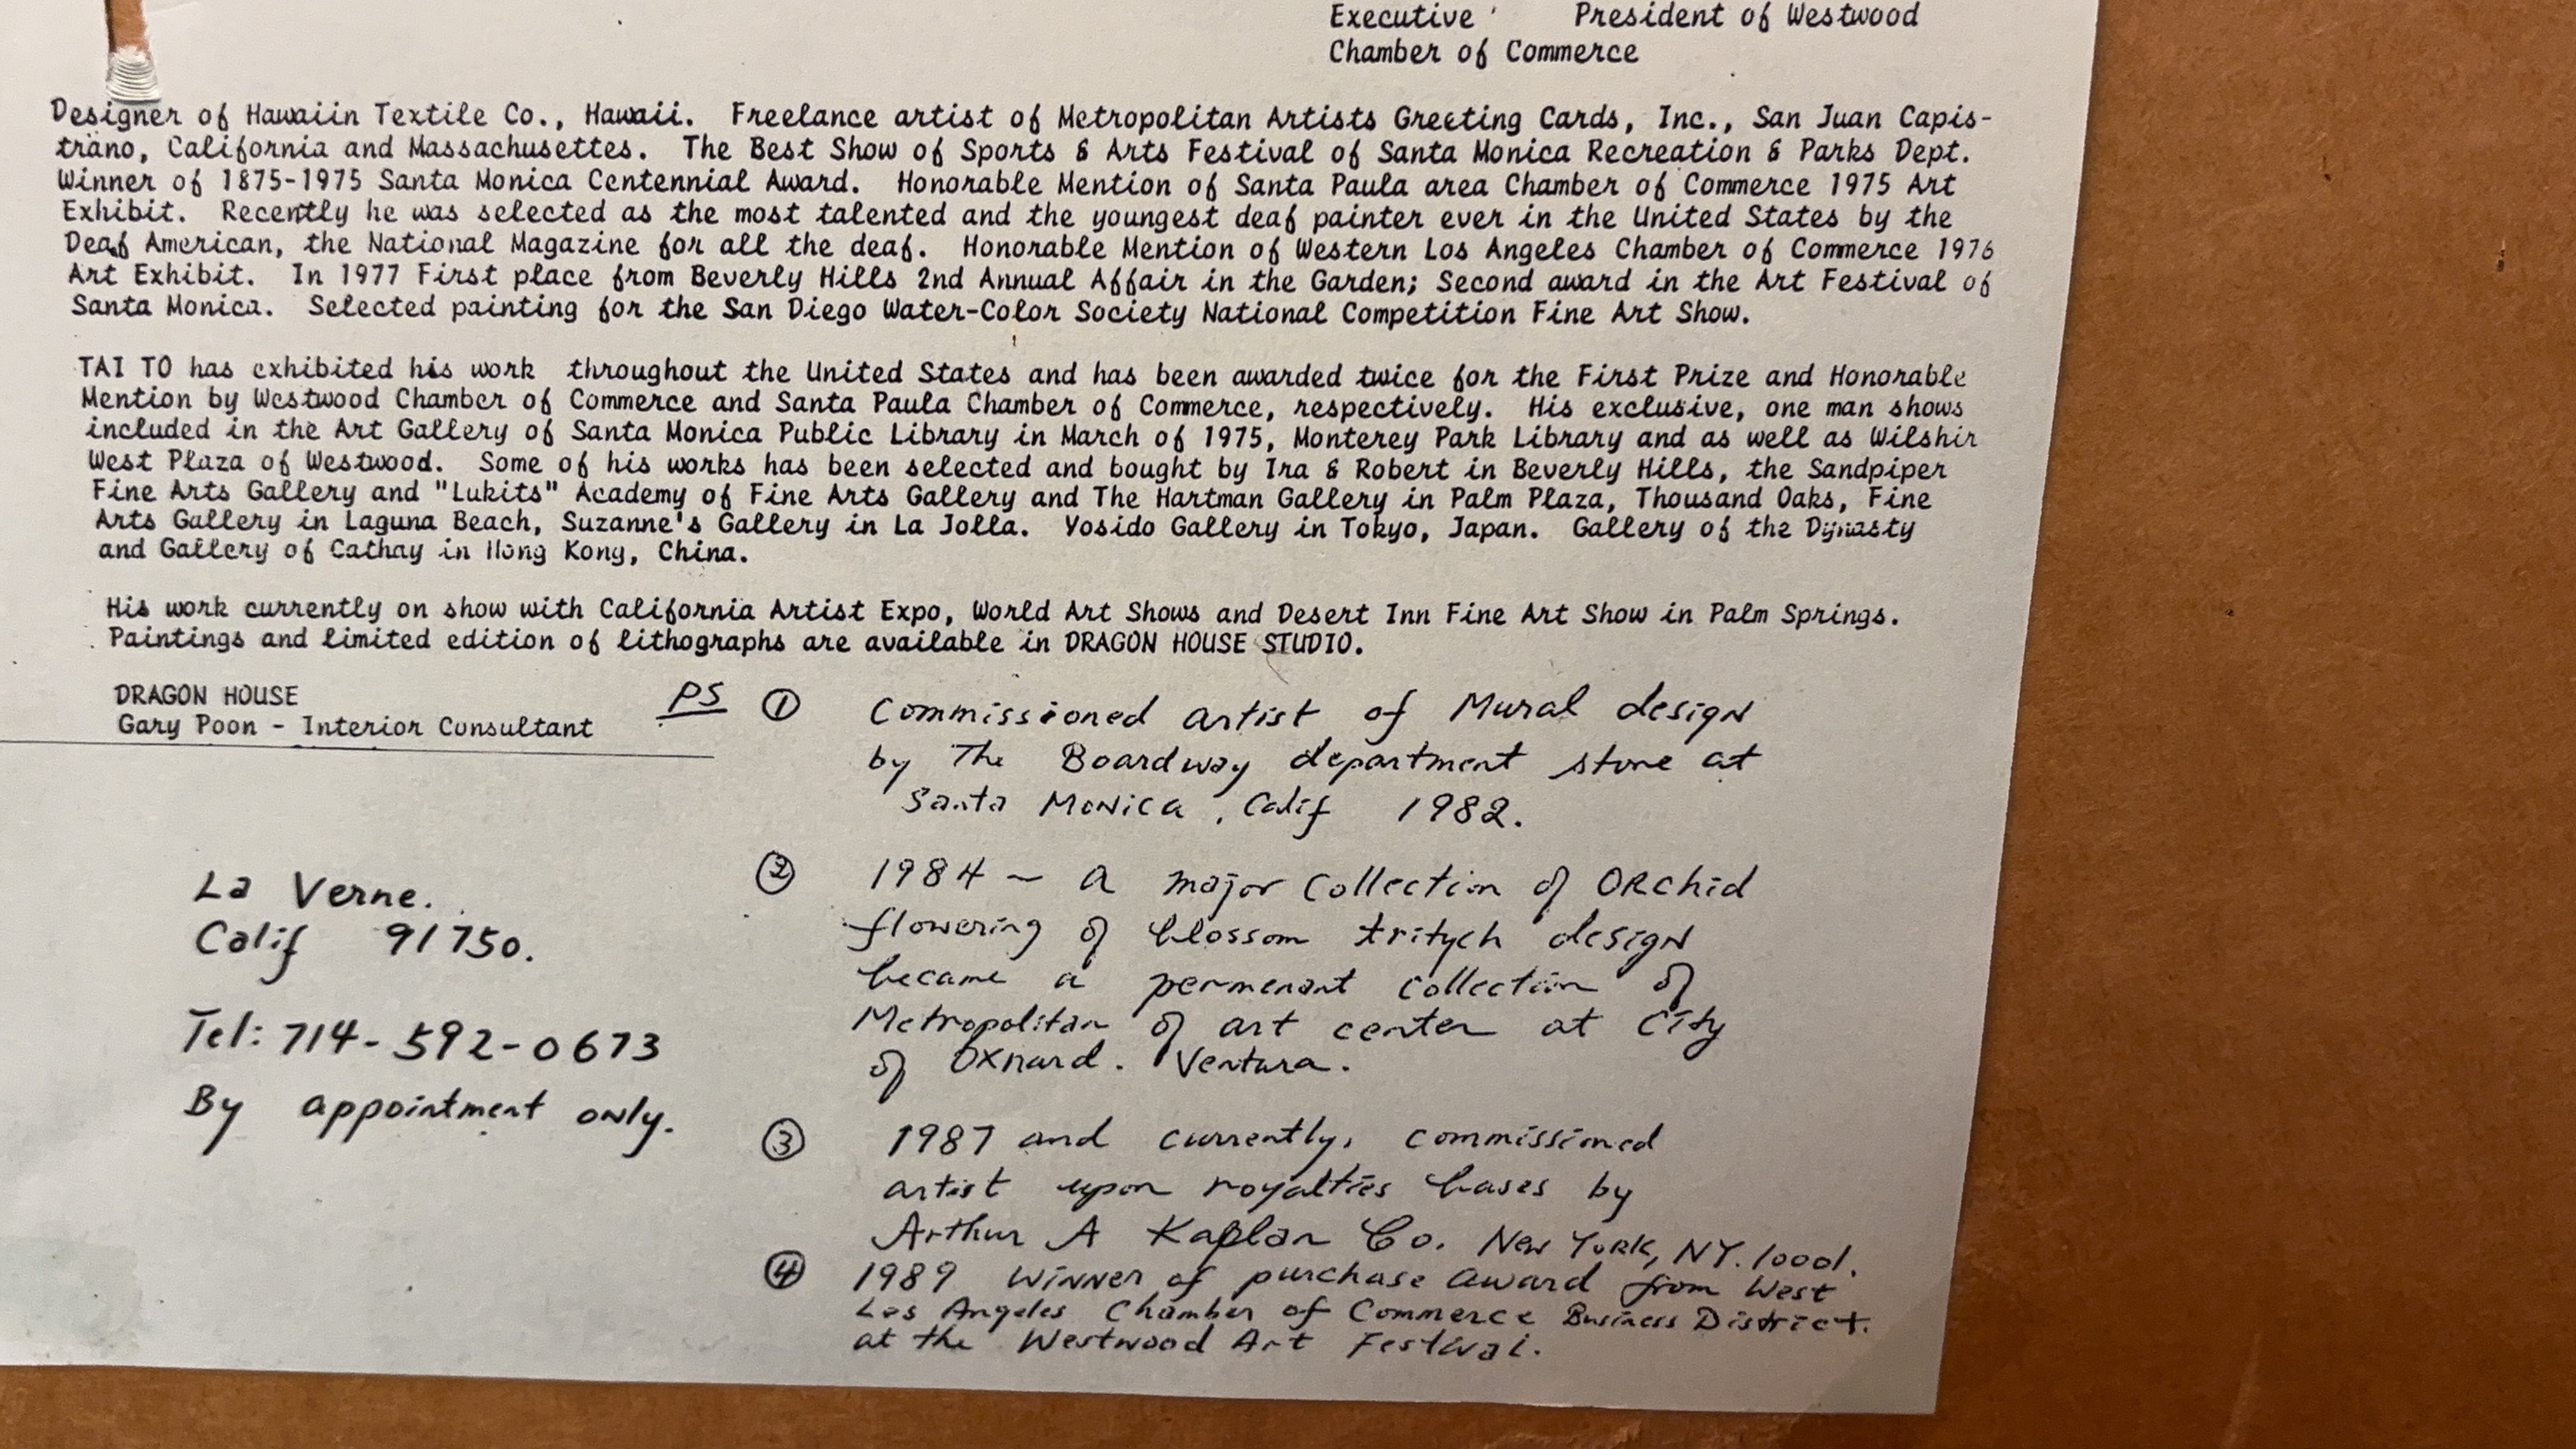 Executive ' President of Westwood
Chamber of Commerce
Designer of Hawaiin Textile Co., Hawaii. Freelance artist of Metropolitan Artists Greeting Cards, Inc., San Juan Capis-
trano, California and Massachusettes. The Best Show of Sports & Arts Festival of Santa Monica Recreation & Parks Dept.
Winner of 1875-1975 Santa Monica Centennial Award. Honorable Mention of Santa Paula area Chamber of Commerce 1975 Art
Exhibit. Recently he was selected as the most talented and the youngest deaf painter ever in the United States by the
Deaf American, the National Magazine for all the deaf. Honorable Mention of Western Los Angeles Chamber of Commerce 1976
Art Exhibit. In 1977 First place from Beverly Hills 2nd Annual Affair in the Garden; Second award in the Art Festival of
Santa Monica. Selected painting for the San Diego Water-Color Society National Competition Fine Art Show.
TAI TO has exhibited his work throughout the United States and has been awarded twice for the First Prize and Honorable
Mention by Westwood Chamber of Commerce and Santa Paula Chamber of Commerce, respectively. His exclusive, one man shows
included in the Art Gallery of Santa Monica Public Library in March of 1975, Monterey Park Library and as well as Wilshir
West Plaza of Westwood. Some of his works has been selected and bought by Ira & Robert in Beverly Hills, the Sandpiper
Fine Arts Gallery and "Lukits" Academy of Fine Arts Gallery and The Hartman Gallery in Palm Plaza, Thousand Oaks, Fine
Arts Gallery in Laguna Beach, Suzanne's Gallery in La Jolla. Yosido Gallery in Tokyo, Japan. Gallery of the Dynasty
and Gallery of Cathay in Hong Kong, China.
His work currently on show with California Artist Expo, World Art Shows and Desert Inn Fine Art Show in Palm Springs.
Paintings and limited edition of lithographs are available in DRAGON HOUSE STUDIO.
DRAGON HOUSE
Gary Poon - Interior Consultant
La Verne.
Calif 91750.
Tel: 714-592-0673
By appointment only.
PS ① Commissioned artist of Mural design
by The Boardway department store at
Santa Monica, Calif 1982.
② 1984 - a major collection of ORchid
flowering of blossom tritych design
became a permenant collection of
Metropolitan of art center at City
of Oxnard. Ventura.
③ 1987 and currently, commissioned
artist upon royalties bases by
Arthur A Kaplan Co. New York, NY. 10001.
④ 1989 Winner of purchase award from West
Los Angeles Chamber of Commerce Business District.
at the Westwood Art Festival.